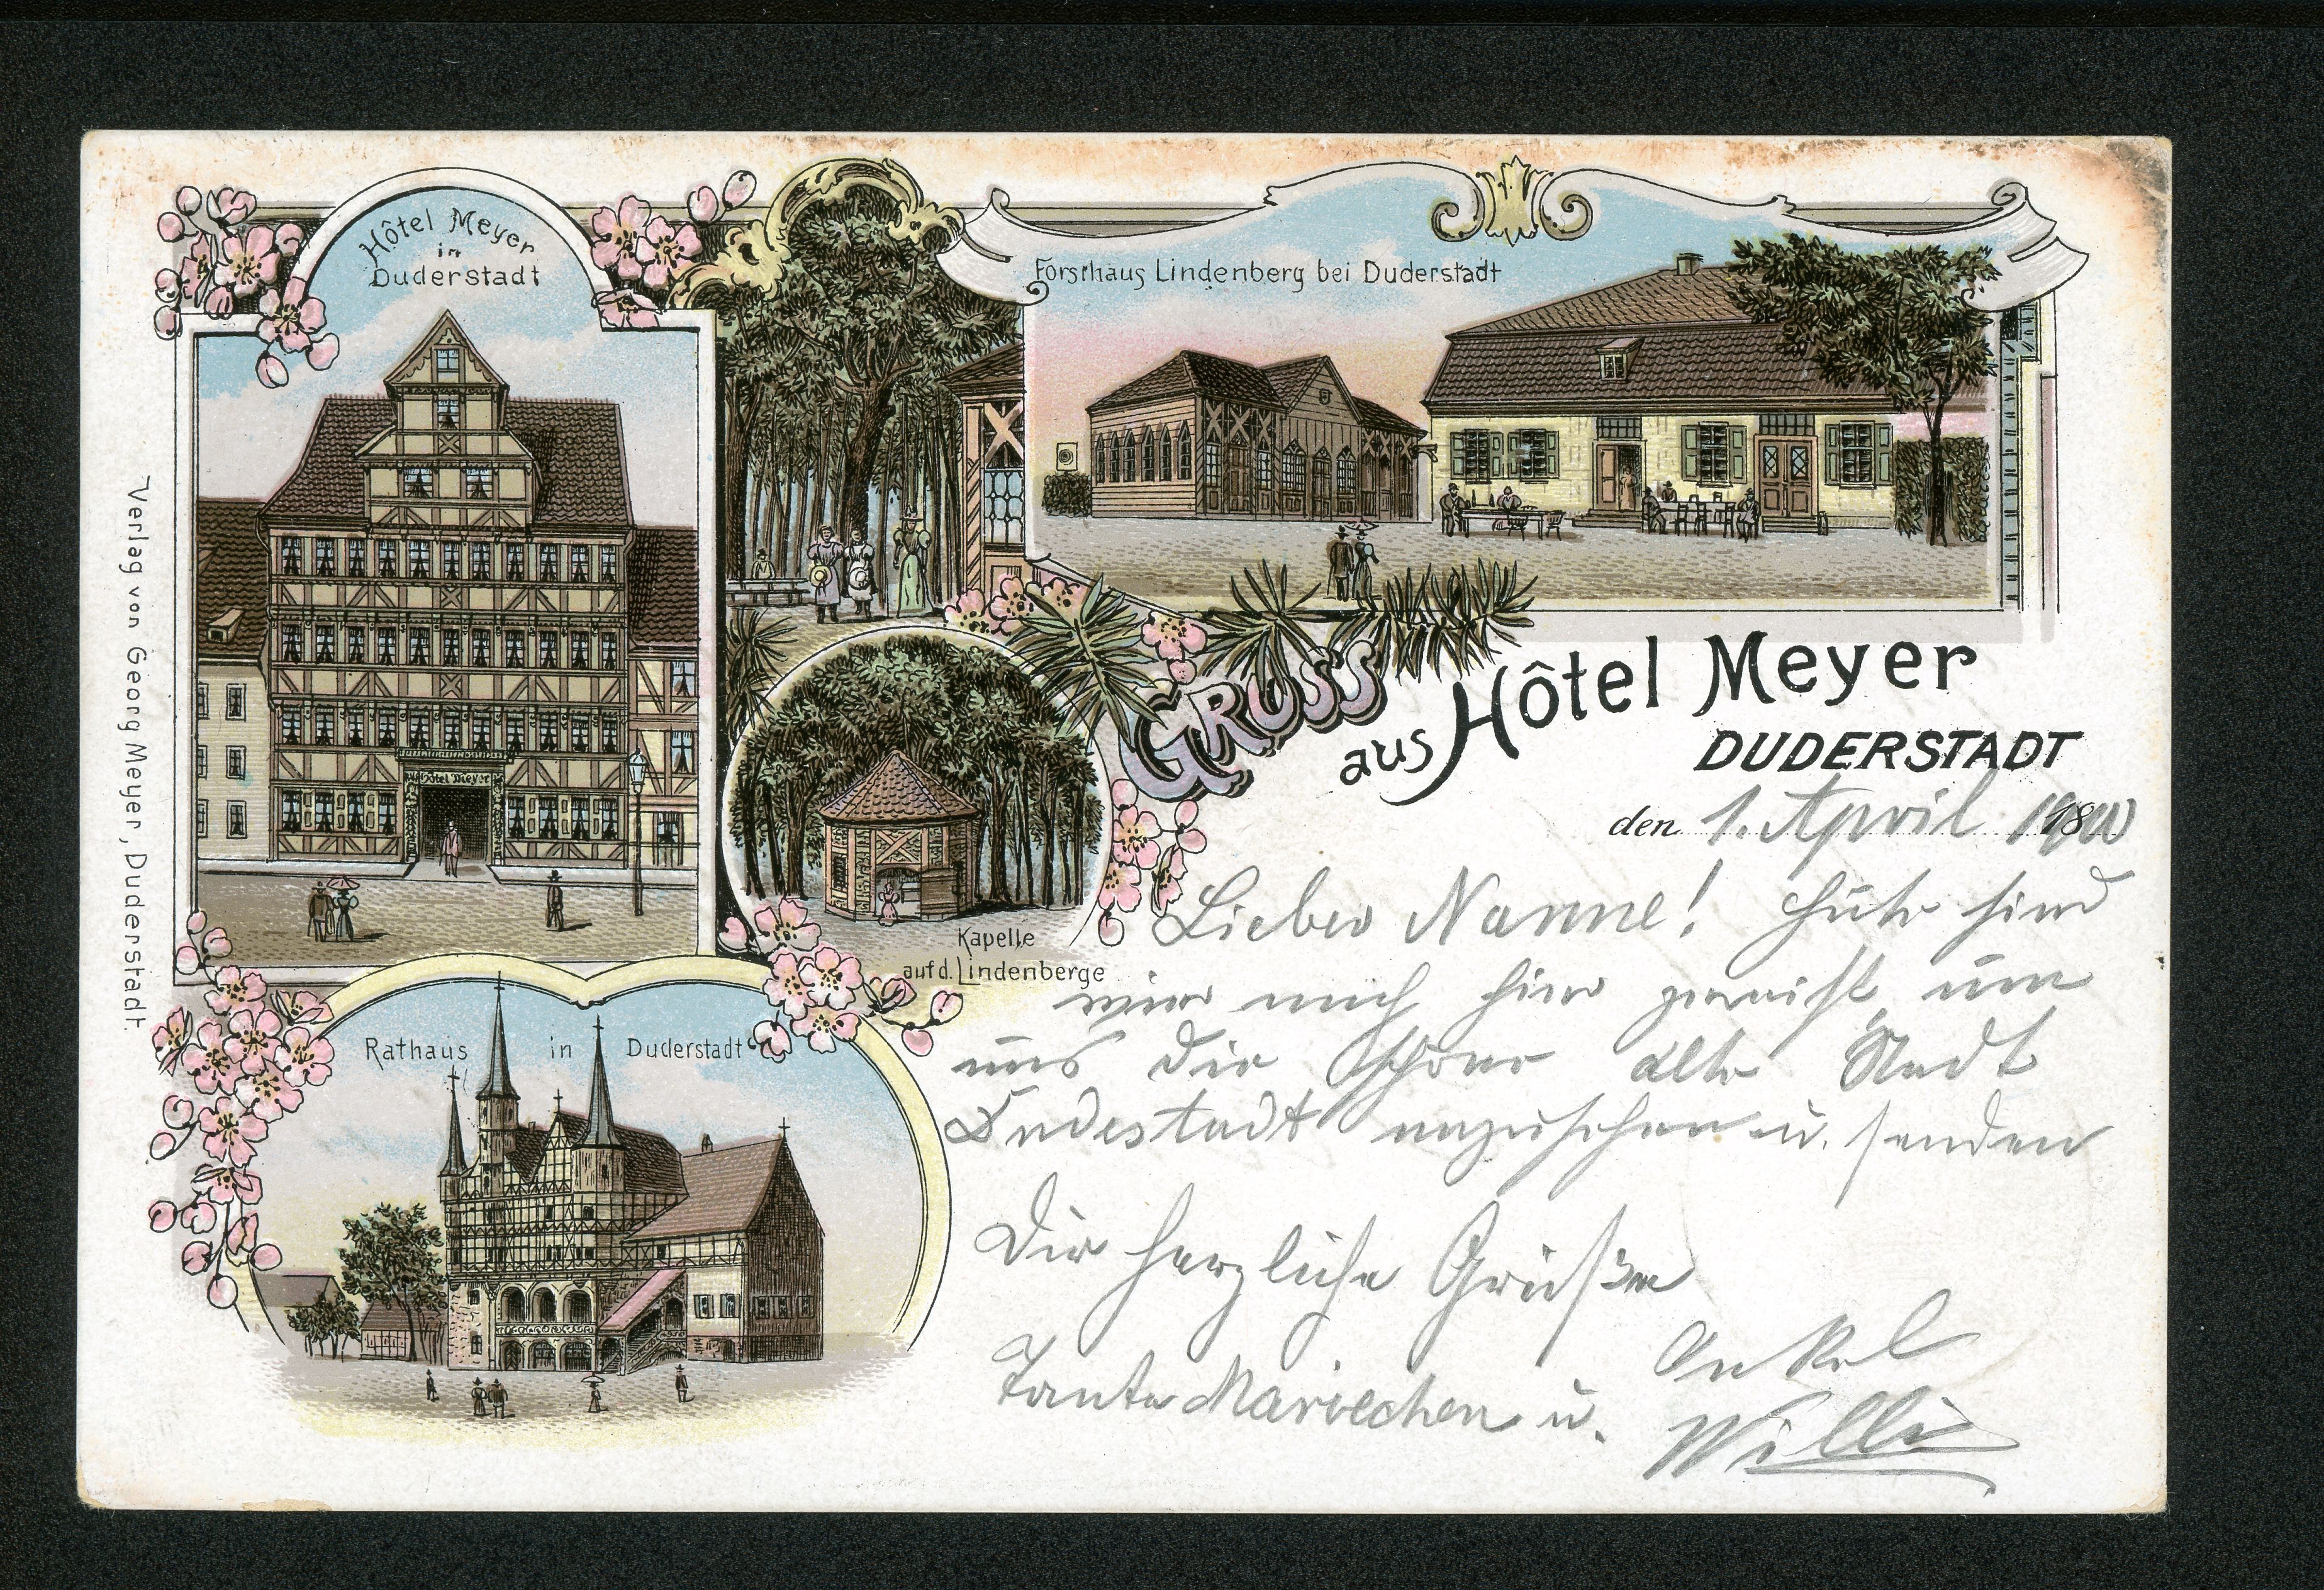 Hôtel Meyer
in
Duderstadt
Forsthaus Lindenberg bei Duderstadt
Hôtel Meyer
Verlag von Georg Meyer, Duderstadt.
GRUSS
aus Hôtel Meyer
DUDERSTADT
den 1. April 1900
Kapelle
auf d. Lindenberge
Rathaus in Duderstadt
Liebes Nanne! Heute sind
wir auch hier gereist um
uns die schöne alte Stadt
Dudestadt anzusehen u. senden
Dir herzliche Grüße
Tante Mariechen u. Onkel
Willi